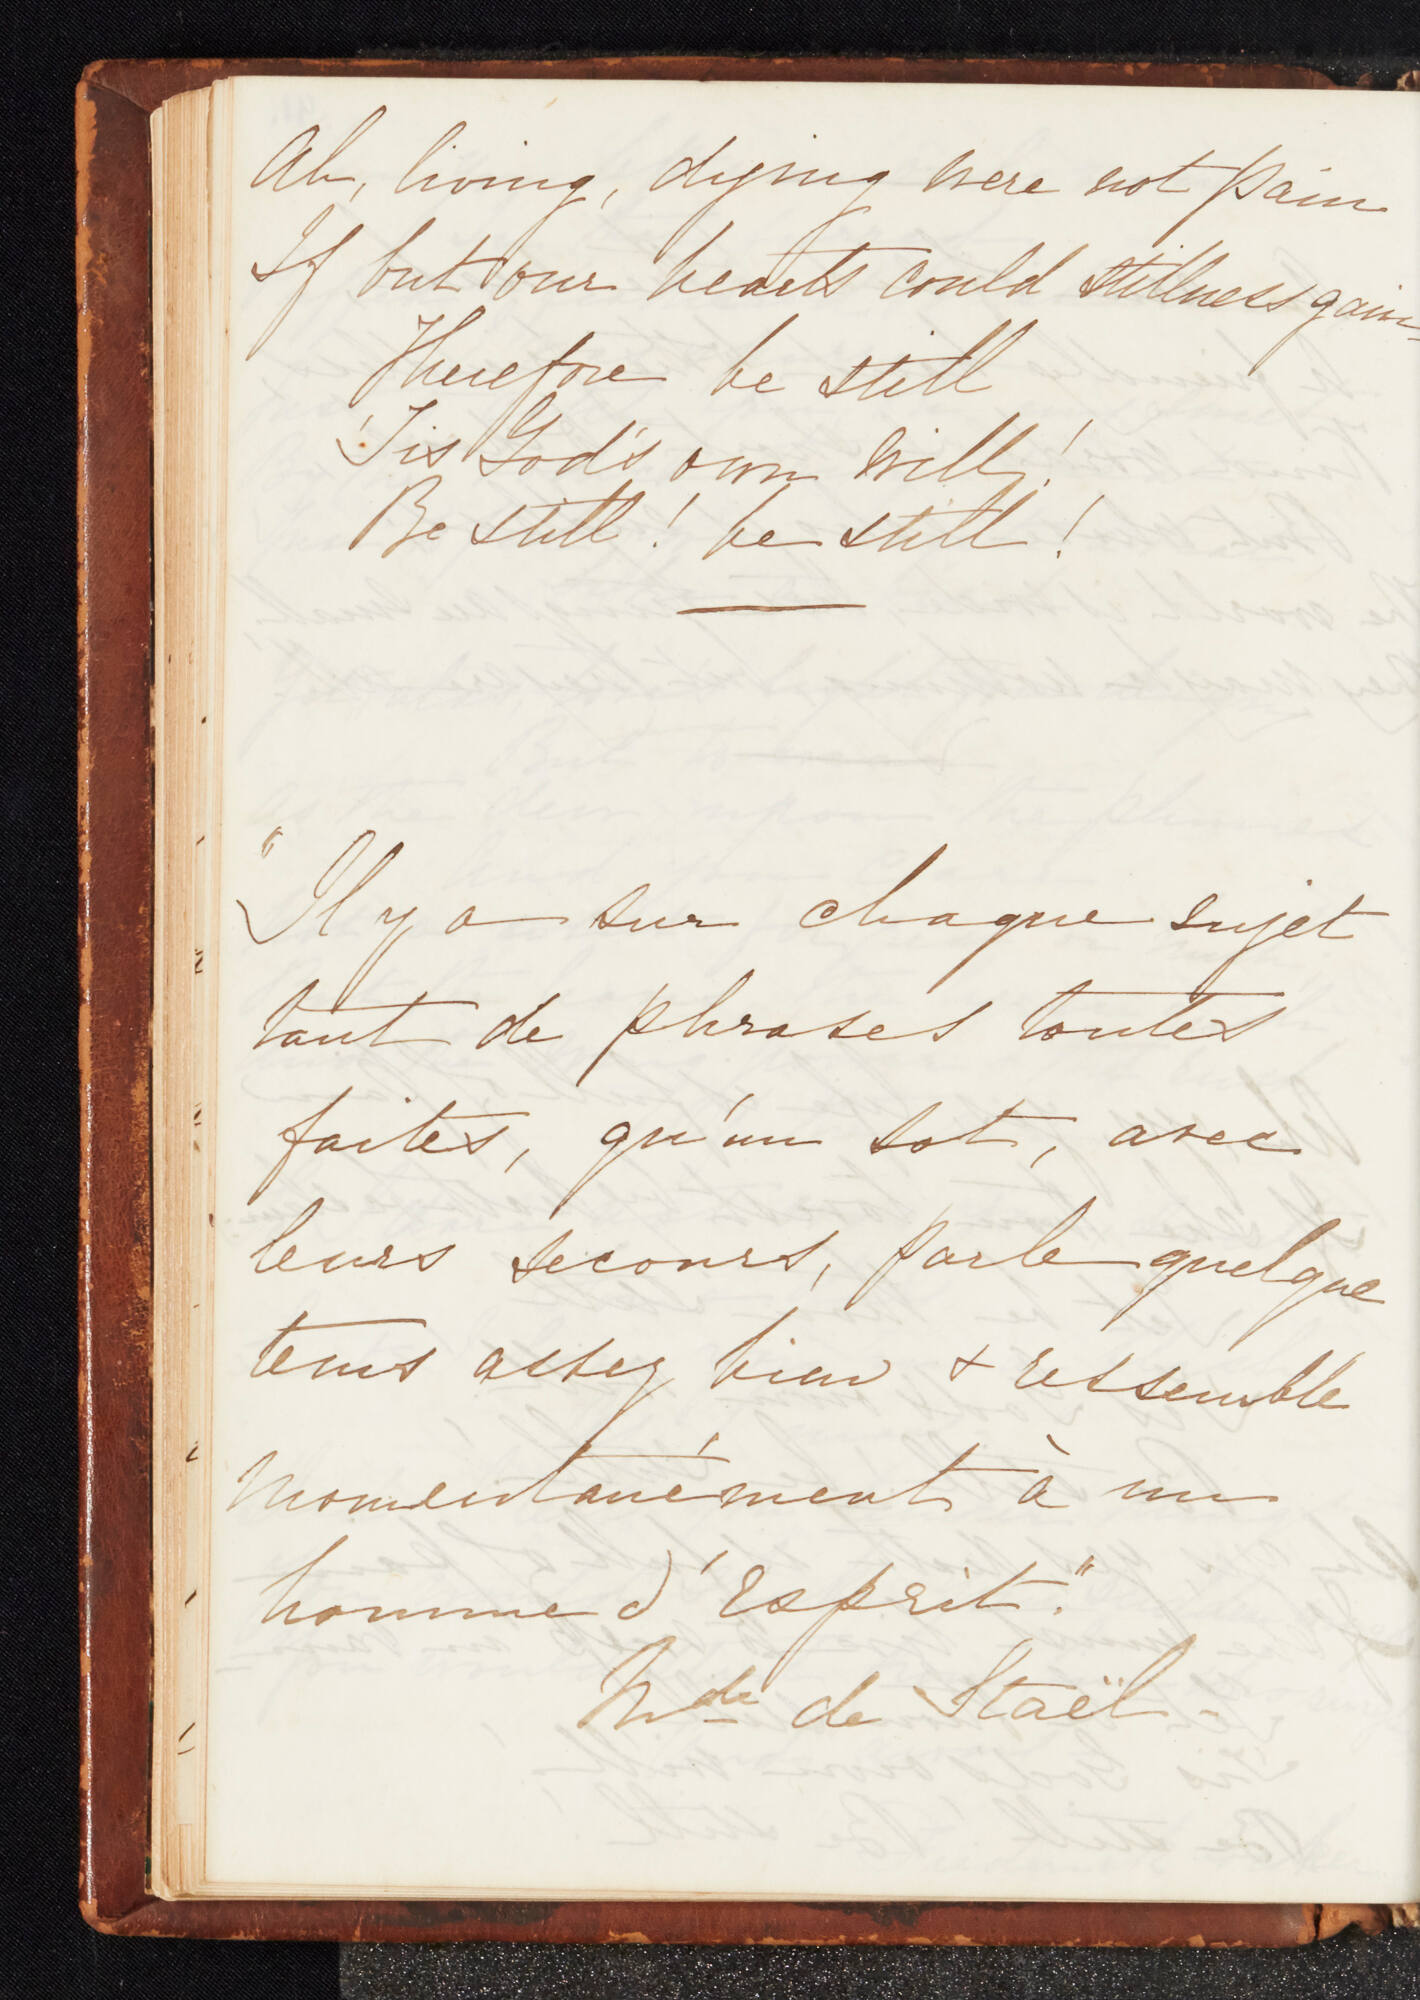 Ah, living, dying were not pain
If but our hearts could stillness gain
Therefore be still
'Tis God's own will!
Be still! be still!
"Il y a sur chaque sujet
tant de phrases toutes
faites, qu'un sot, avec
leurs secours, parle quelque
tems assez bien & ressemble
momentanément à un
homme d'esprit."
Mde de Staël-